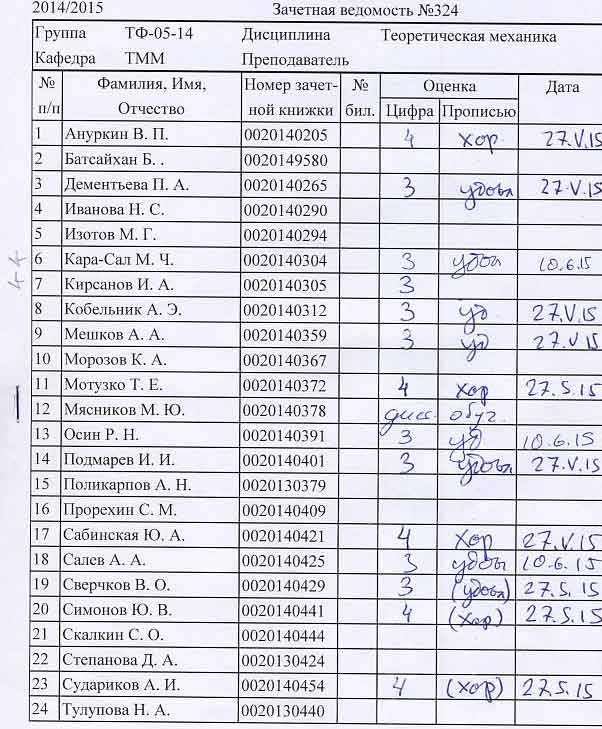 2014/2015 Зачетная ведомость №324
Группа ТФ-05-14 Дисциплина Теоретическая механика
Кафедра ТММ Преподаватель
№ Фамилия, Имя, Номер зачет- № Оценка Дата
п/п Отчество ной книжки бил. Цифра Прописью
1 Ануркин В. П. 0020140205 4 хор 27.V.15
2 Батсайхан Б. . 0020149580
3 Дементьева П. А. 0020140265 3 удовл 27.V.15
4 Иванова Н. С. 0020140290
5 Изотов М. Г. 0020140294
6 Кара-Сал М. Ч. 0020140304 3 удовл 10.6.15
7 Кирсанов И. А. 0020140305 3
8 Кобельник А. Э. 0020140312 3 уд 27.V.15
9 Мешков А. А. 0020140359 3 уд 27.V.15
10 Морозов К. А. 0020140367
11 Мотузко Т. Е. 0020140372 4 хор 27.5.15
12 Мясников М. Ю. 0020140378 дист. обуч.
13 Осин Р. Н. 0020140391 3 уд 10.6.15
14 Подмарев И. И. 0020140401 3 удовл 27.V.15
15 Поликарпов А. Н. 0020130379
16 Прорехин С. М. 0020140409
17 Сабинская Ю. А. 0020140421 4 хор 27.V.15
18 Салев А. А. 0020140425 3 удовл 10.6.15
19 Сверчков В. О. 0020140429 3 (удовл) 27.5.15
20 Симонов Ю. В. 0020140441 4 (хор) 27.5.15
21 Скалкин С. О. 0020140444
22 Степанова Д. А. 0020130424
23 Судариков А. И. 0020140454 4 (хор) 27.5.15
24 Тулупова Н. А. 0020130440
44